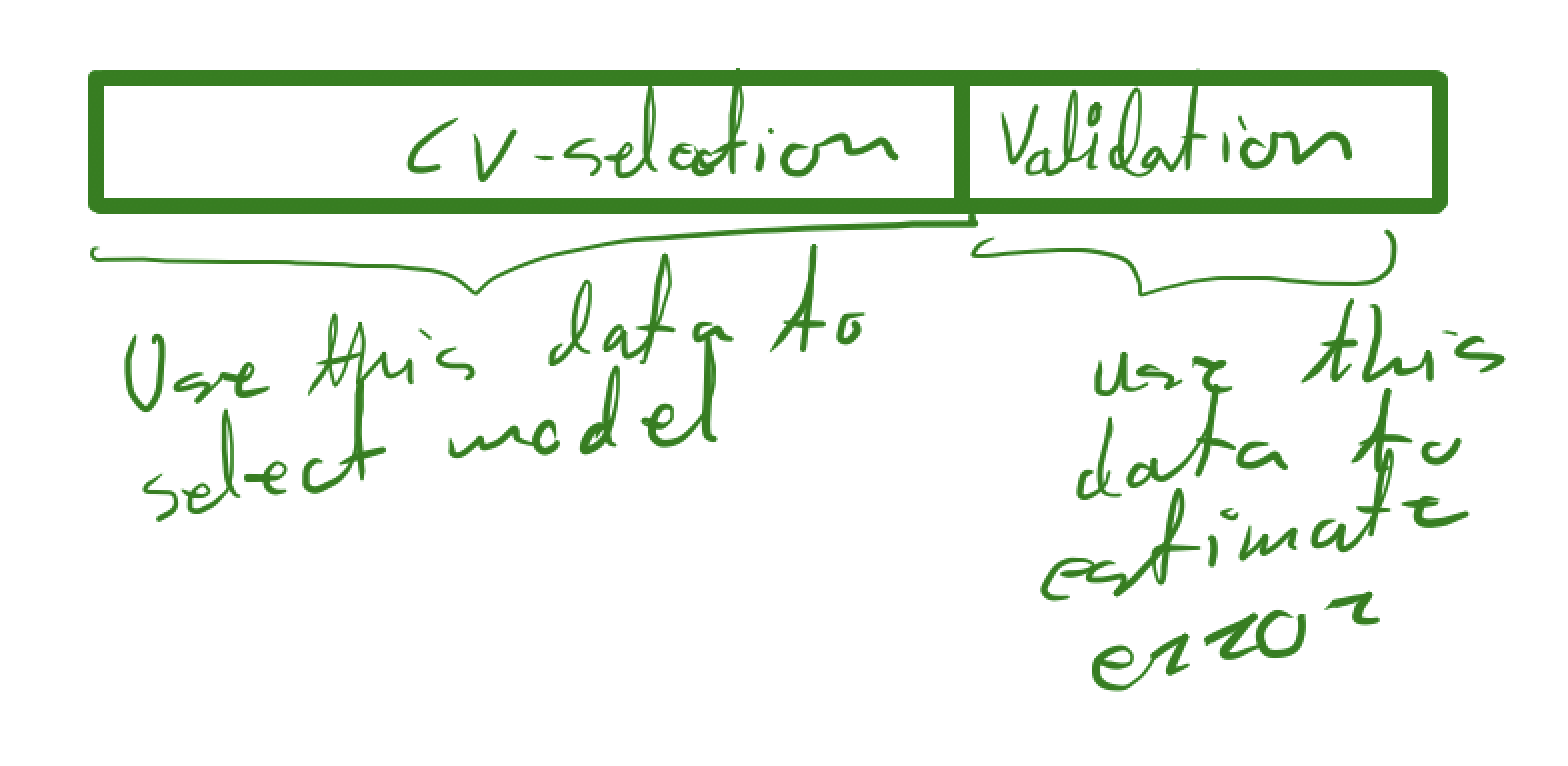 CV-selection
Validation
Use this data to
select model
use this
data to
estimate
error